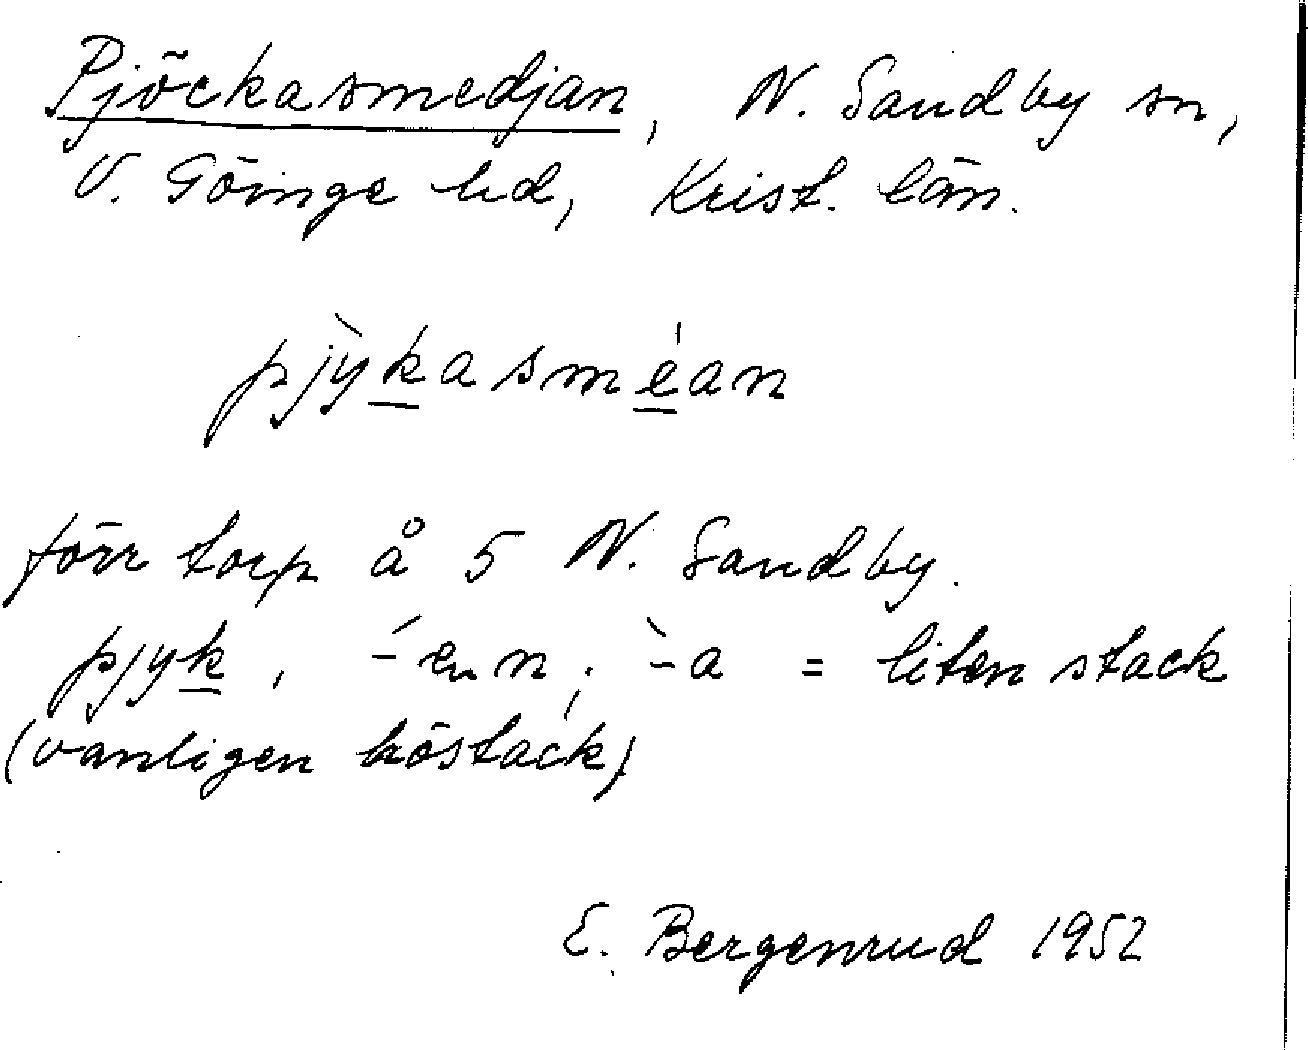 Pjöckasmedjan, N. Sandby sn,
V. Göinge hd, Krist. län.
pjỳkasméan
förr torp å 5 N. Sandby.
pjyk, -́en; -̀a = liten stack
(vanligen höstack)
E. Bergenrud 1952